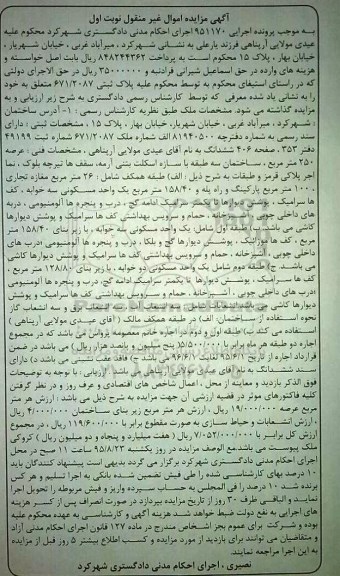 آگهی مزایده اموال غیر منقول نوبت اول
به موجب پرونده اجرایی ۹۵۱۱۷۰ اجرای احکام مدنی دادگستری شهرکرد محکوم علیه
عیدی مولایی آرپناهی فرزند یارعلی به نشانی شهرکرد ، میرآباد غربی ، خیابان شهریار ،
خیابان بهار ، پلاک ۱۵ محکوم است به پرداخت ۸۴۸۲۴۴۳۶۲ ریال بابت اصل خواسته و
هزینه های وارده در حق اسماعیل شیرانی فرادنبه و ۳۵۰۰۰۰۰۰ ریال در حق الاجرای دولتی
که در راستای استیفای محکوم به توسط محکوم علیه پلاک ثبتی ۶۷۱/۲۰۸۷ متعلق به خود
را به نشانی یاد شده معرفی که توسط کارشناس رسمی دادگستری به شرح زیر ارزیابی و به
مزایده گذاشته می شود. مشخصات ملک طبق نظریه کارشناس رسمی : ۱- آدرس ساختمان
: شهرکرد ، میرآباد غربی ، خیابان شهریار، خیابان بهار ، پلاک ۱۵ ، مشخصات ثبتی : دارای
سند رسمی به شماره دفترچه ۸۱۹۴۰۵۰ الف شماره ملک ۶۷۱/۲۰۸۷ شماره ثبت ۴۹۱۹۹
دفتر ۳۵۳ ، صفحه ۴۰۶ ششدانگ به نام آقای عیدی مولایی آرپناهی ، مشخصات فنی : عرصه
۲۵۰ متر مربع ، ساختمان سه طبقه با سازه اسکلت بتنی آرمه، سقف ها تیرچه بلوک ، نما
آجر پلاکی قرمز و طبقات به شرح ذیل : الف) طبقه همکف شامل : ۲۶ متر مربع مغازه تجاری
، ۱۰۰ متر مربع پارکینگ و راه پله و ۱۵۸/۴۰ متر مربع یک واحد مسکونی سه خوابه ، کف
ها سرامیک ، پوشش دیوارها تا یکمتر سرامیک ادامه گچ ، درب و پنجره ها آلومینیومی ، دربه
های داخلی چوبی ، آشپزخانه ، حمام و سرویس بهداشتی کف ها سرامیک و پوشش دیوارها
کاشی می باشد. ب) طبقه اول شامل: یک واحد مسکونی سه خوابه ، با زیر بنای ۱۵۸/۴۰ متر
مربع ، کف ها موزائیک ، پوشش دیوارها گچ و بلکا ، درب و پنجره ها آلومینیومی ،درب های
داخلی چوبی ، آشپزخانه ، حمام و سرویس بهداشتی کف ها سرامیک و پوشش دیوارها کاشی
می باشد. ج) طبقه دوم شامل یک واحد مسکونی دو خوابه ، با زیر بنای ۱۲۸/۸۰ متر مربع ،
کف ها سرامیک ، پوشش دیوارها تا یکمتر سرامیک ادامه گچ، درب و پنجره ها آلومینیومی
،درب های داخلی چوبی ، آشپزخانه ، حمام و سرویس بهداشتی کف ها سرامیک و پوشش
دیوارها کاشی می باشد. انشعابات شامل : سه انشعاب آب، سه انشعاب برق و سه انشعاب گاز
نحوه استفاده از ساختمان: الف) در طبقه همکف مالک ( آقای عیدی مولایی آرپناهی )
استفاده می کند ب) طبقه اول و دوم در اجاره خانم معصومه یزدانی می باشد که در مجموع
اجاره دو طبقه هر ماه برابر با ۱۵/۵۰۰/۰۰۰ پنج میلیون و پانصد هزار ریال ) می باشد در ضمن
قرارداد اجاره از تاریخ ۹۵/۶/۱ لغایت ۹۶/۶/۱ می باشد ج) فاقد عفت نشینی می باشد د) دارای
سند ششدانگ به نام آقای عیدی مولایی آرپناهی می باشد. ارزیابی : با توجه به توضیحات
فوق الذکر بازدید و معاینه از محل ، اعمال شاخص های اقتصادی و عرف روز و در نظر گرفتن
کلیه فاکتورهای موثر در قضیه ارزشی آن جهت مزایده به شرح ذیل می باشد : ارزش هر متر
مربع عرصه ۱۹/۰۰۰/۰۰۰ ریال ، ارزش هر متر مربع زیر بنای ساختمان ۴/۰۰۰/۰۰۰ ریال
، ارزش انشعابات و حیاط سازی به صورت مقطوع برابر با ۱۱۹/۶۰۰/۰۰۰ ریال ، در مجموع
ارزش کل برابر با ۷/۰۵۲/۰۰۰/۰۰۰ ریال ( هفت میلیارد و پنجاه و دو میلیون ریال ) کروکی
ملک پیوست می باشد.مع الوصف مزایده در روز یکشنبه ۹۵/۸/۲۳ ساعت ۱۱ صبح در محل
اجرای احکام مدنی دادگستری شهرکرد برگزار می گردد بدیهی است پیشنهاد کنندگان باید
۱۰ درصد بهای کارشناسی شده را طی فیش تضمین شده بانکی به اجرا تسلیم و هر کس
برنده شد ۱۰ درصد را فی المجلس به حساب سپرده واریز و فیش مربوطه را تحویل اجرا
نماید و الباقی ظرف ۳۰ روز از تاریخ مزایده بپردازد در صورت انصراف پس از کسر هزینه
های اجرایی به نفع دولت ضبط خواهد شد هزینه آگهی و کارشناسی به عهده محکوم علیه
بوده و شرکت برای عموم بجز اشخاص مندرج در ماده ۱۲۷ قانون اجرای احکام مدنی آزاد
و متقاضیان می توانند برای بازدید از مورد مزایده و کسب اطلاع بیشتر ۵ روز قبل از مزایده
به این اجرا مراجعه نمایند.
نصیری ، اجرای احکام مدنی دادگستری شهرکرد